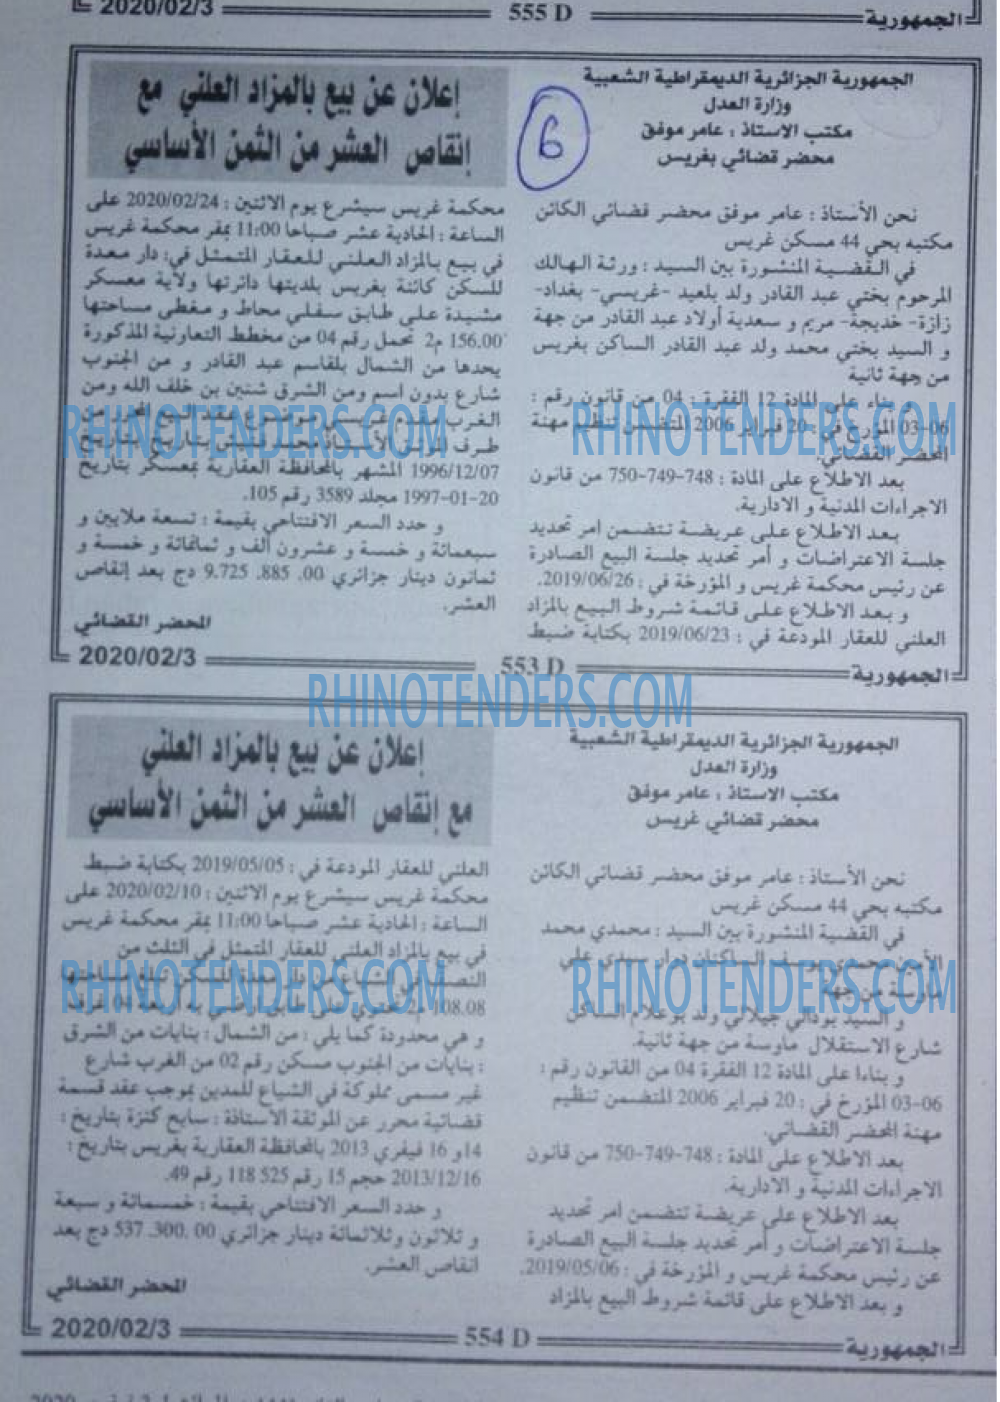 2020/02/3
555 D
الجمهورية
الجمهورية الجزائرية الديمقراطية الشعبية
وزارة العدل
مكتب الاستاذ : عامر موفق
محضر قضائي بغريس
6
إعلان عن بيع بالمزاد العلني مع
إنقاص العشر من الثمن الأساسي
نحن الأستاذ : عامر موفق محضر قضائي الكائن
مكتبه بحي 44 مسكن غريس
في القضية المنشورة بين السيد : ورثة الهالك
المرحوم بختي عبد القادر ولد بلعيد -غريسي- بغداد-
زازة- خديجة- مريم و سعدية أولاد عبد القادر من جهة
و السيد بختي محمد ولد عبد القادر الساكن بغريس
من جهة ثانية
و بناء على المادة 12 الفقرة : 04 من قانون رقم :
03-06 المؤرخ في : 20 فبراير 2006 المتضمن تنظيم مهنة
المحضر القضائي.
بعد الاطلاع على المادة : 748-749-750 من قانون
الاجراءات المدنية و الادارية.
بعد الاطلاع على عريضة تتضمن امر تحديد
جلسة الاعتراضات و أمر تحديد جلسة البيع الصادرة
عن رئيس محكمة غريس و المؤرخة في : 2019/06/26.
و بعد الاطلاع على قائمة شروط البيع بالمزاد
العلني للعقار المودعة في : 2019/06/23 بكتابة ضبط
محكمة غريس سيشرع يوم الاثنين : 2020/02/24 على
الساعة : الحادية عشر صباحا 11:00 بمقر محكمة غريس
في بيع بالمزاد العلني للعقار المتمثل في: دار معدة
للسكن كائنة بغريس بلديتها دائرتها ولاية معسكر
مشيدة على طابق سفلي محاط و مغطى مساحتها
156.00 م2 تحمل رقم 04 من مخطط التعاونية المذكورة
يحدها من الشمال بلقاسم عبد القادر و من الجنوب
شارع بدون اسم ومن الشرق شنين بن خلف الله ومن
الغرب مقدم
طرف الموثق الأستاذ بتاريخ
1996/12/07 المشهر بالمحافظة العقارية بمعسكر بتاريخ
20-01-1997 مجلد 3589 رقم 105.
و حدد السعر الافتتاحي بقيمة : تسعة ملايين و
سبعمائة و خمسة و عشرون ألف و ثمانمائة و خمسة و
ثمانون دينار جزائري 00. 885. 9.725 دج بعد إنقاص
العشر.
المحضر القضائي
2020/02/3
553 D
الجمهورية
RHINOTENDERS.COM
RHINOTENDERS.COM
RHINOTENDERS.COM
الجمهورية الجزائرية الديمقراطية الشعبية
وزارة العدل
مكتب الاستاذ : عامر موفق
محضر قضائي غريس
إعلان عن بيع بالمزاد العلني
مع إنقاص العشر من الثمن الأساسي
نحن الأستاذ : عامر موفق محضر قضائي الكائن
مكتبه بحي 44 مسكن غريس
في القضية المنشورة بين السيد : محمدي محمد
الأمين محمدي يوسف الساكنان دوار سيدي علي
ماوسة من جهة
و السيد بوداني جيلالي ولد بوعلام الساكن
شارع الاستقلال ماوسة من جهة ثانية.
و بناءا على المادة 12 الفقرة 04 من القانون رقم :
03-06 المؤرخ في : 20 فبراير 2006 المتضمن تنظيم
مهنة المحضر القضائي.
بعد الاطلاع على المادة : 748-749-750 من قانون
الاجراءات المدنية و الادارية.
بعد الاطلاع على عريضة تتضمن امر تحديد
جلسة الاعتراضات و أمر تحديد جلسة البيع الصادرة
عن رئيس محكمة غريس و المؤرخة في : 2019/05/06.
و بعد الاطلاع على قائمة شروط البيع بالمزاد
العلني للعقار المودعة في : 2019/05/05 بكتابة ضبط
محكمة غريس سيشرع يوم الاثنين : 2020/02/10 على
الساعة : الحادية عشر صباحا 11:00 بمقر محكمة غريس
في بيع بالمزاد العلني للعقار المتمثل في الثلث من
النصف في الشياع من دار معدة للسكن تبلغ مساحتها
108.08 م2 تحتوي على طابق أرضي به أربعة 04 غرفة
و هي محدودة كما يلي : من الشمال : بنايات من الشرق
: بنايات من الجنوب مسكن رقم 02 من الغرب شارع
غير مسمى مملوكة في الشياع للمدين بموجب عقد قسمة
قضائية محرر عن الموثقة الاستاذة : سايح كنزة بتاريخ :
14و 16 فيفري 2013 بالمحافظة العقارية بغريس بتاريخ :
2013/12/16 حجم 15 رقم 525 118 رقم 49.
و حدد السعر الافتتاحي بقيمة : خمسمائة و سبعة
و ثلاثون وثلاثمائة دينار جزائري 00 .300. 537 دج بعد
انقاص العشر.
المحضر القضائي
2020/02/3
554 D
الجمهورية
RHINOTENDERS.COM
RHINOTENDERS.COM